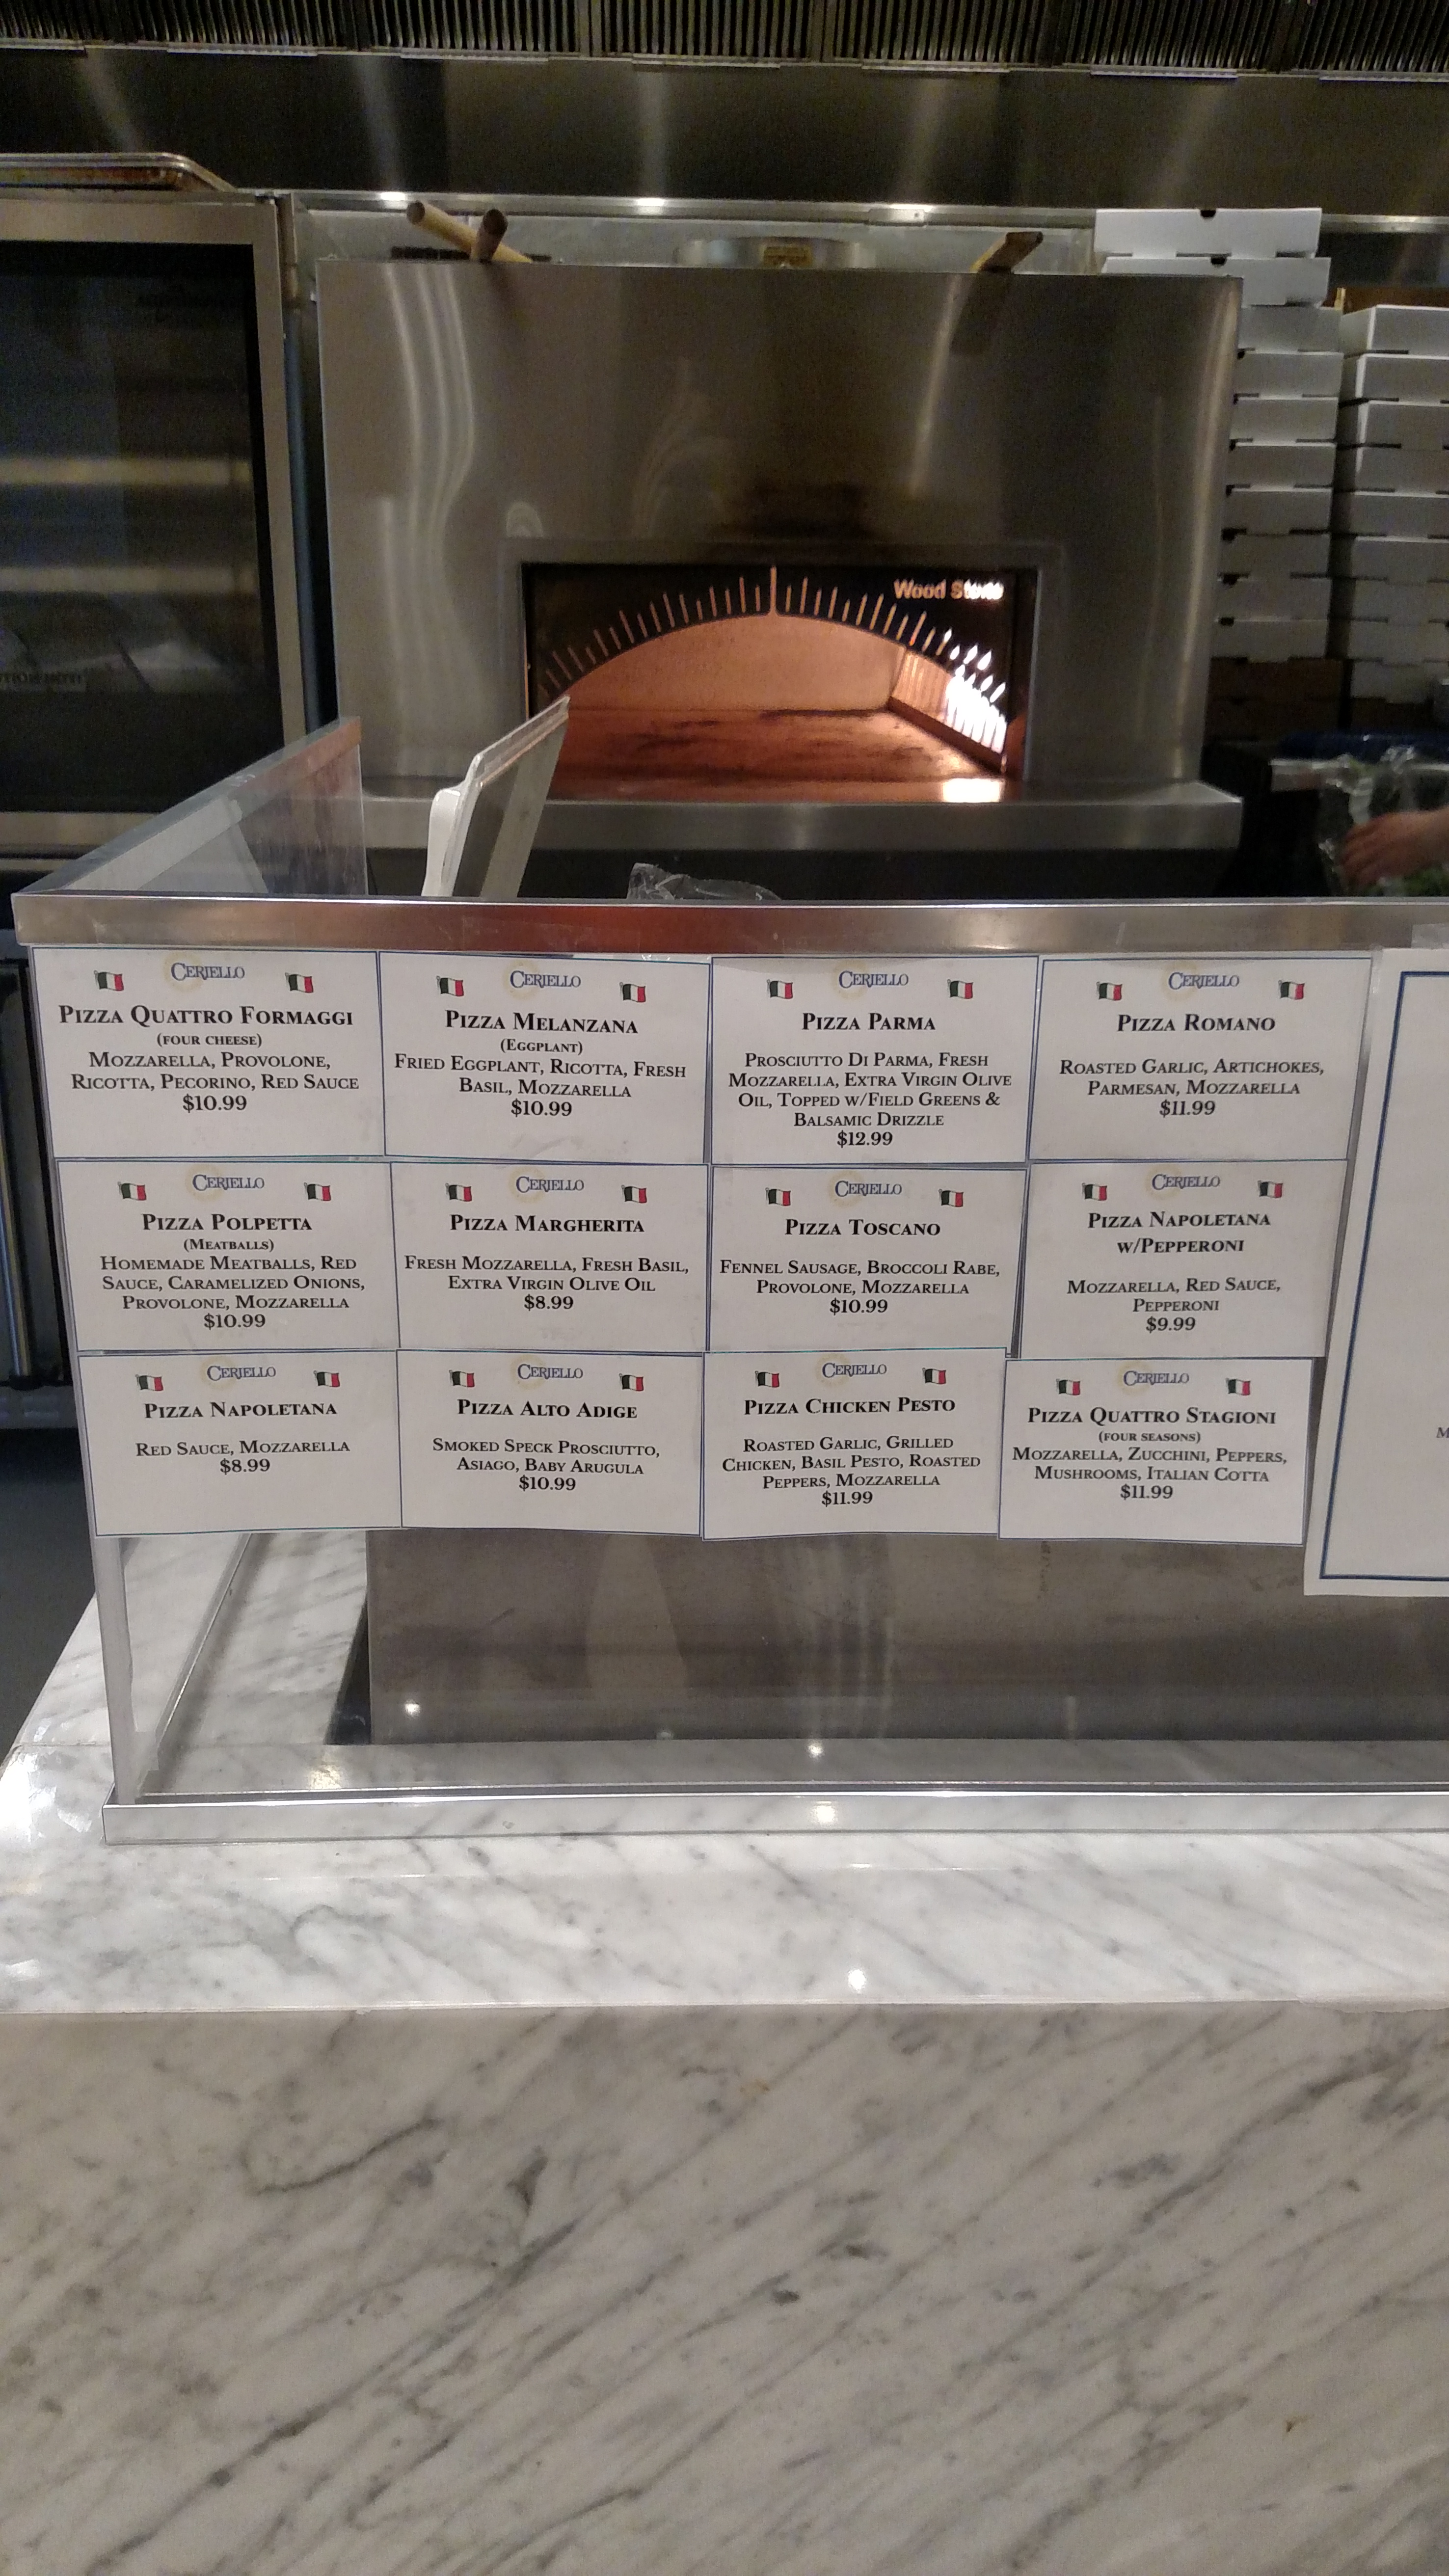 Wood Stone
CERIELLO
PIZZA QUATTRO FORMAGGI
(FOUR CHEESE)
MOZZARELLA, PROVOLONE,
RICOTTA, PECORINO, RED SAUCE
$10.99
CERIELLO
PIZZA MELANZANA
(EGGPLANT)
FRIED EGGPLANT, RICOTTA, FRESH
BASIL, MOZZARELLA
$10.99
CERIELLO
PIZZA PARMA
PROSCIUTTO DI PARMA, FRESH
MOZZARELLA, EXTRA VIRGIN OLIVE
OIL, TOPPED W/FIELD GREENS &
BALSAMIC DRIZZLE
$12.99
CERIELLO
PIZZA ROMANO
ROASTED GARLIC, ARTICHOKES,
PARMESAN, MOZZARELLA
$11.99
CERIELLO
PIZZA POLPETTA
(MEATBALLS)
HOMEMADE MEATBALLS, RED
SAUCE, CARAMELIZED ONIONS,
PROVOLONE, MOZZARELLA
$10.99
CERIELLO
PIZZA MARGHERITA
FRESH MOZZARELLA, FRESH BASIL,
EXTRA VIRGIN OLIVE OIL
$8.99
CERIELLO
PIZZA TOSCANO
FENNEL SAUSAGE, BROCCOLI RABE,
PROVOLONE, MOZZARELLA
$10.99
CERIELLO
PIZZA NAPOLETANA
W/PEPPERONI
MOZZARELLA, RED SAUCE,
PEPPERONI
$9.99
CERIELLO
PIZZA NAPOLETANA
RED SAUCE, MOZZARELLA
$8.99
CERIELLO
PIZZA ALTO ADIGE
SMOKED SPECK PROSCIUTTO,
ASIAGO, BABY ARUGULA
$10.99
CERIELLO
PIZZA CHICKEN PESTO
ROASTED GARLIC, GRILLED
CHICKEN, BASIL PESTO, ROASTED
PEPPERS, MOZZARELLA
$11.99
CERIELLO
PIZZA QUATTRO STAGIONI
(FOUR SEASONS)
MOZZARELLA, ZUCCHINI, PEPPERS,
MUSHROOMS, ITALIAN COTTA
$11.99